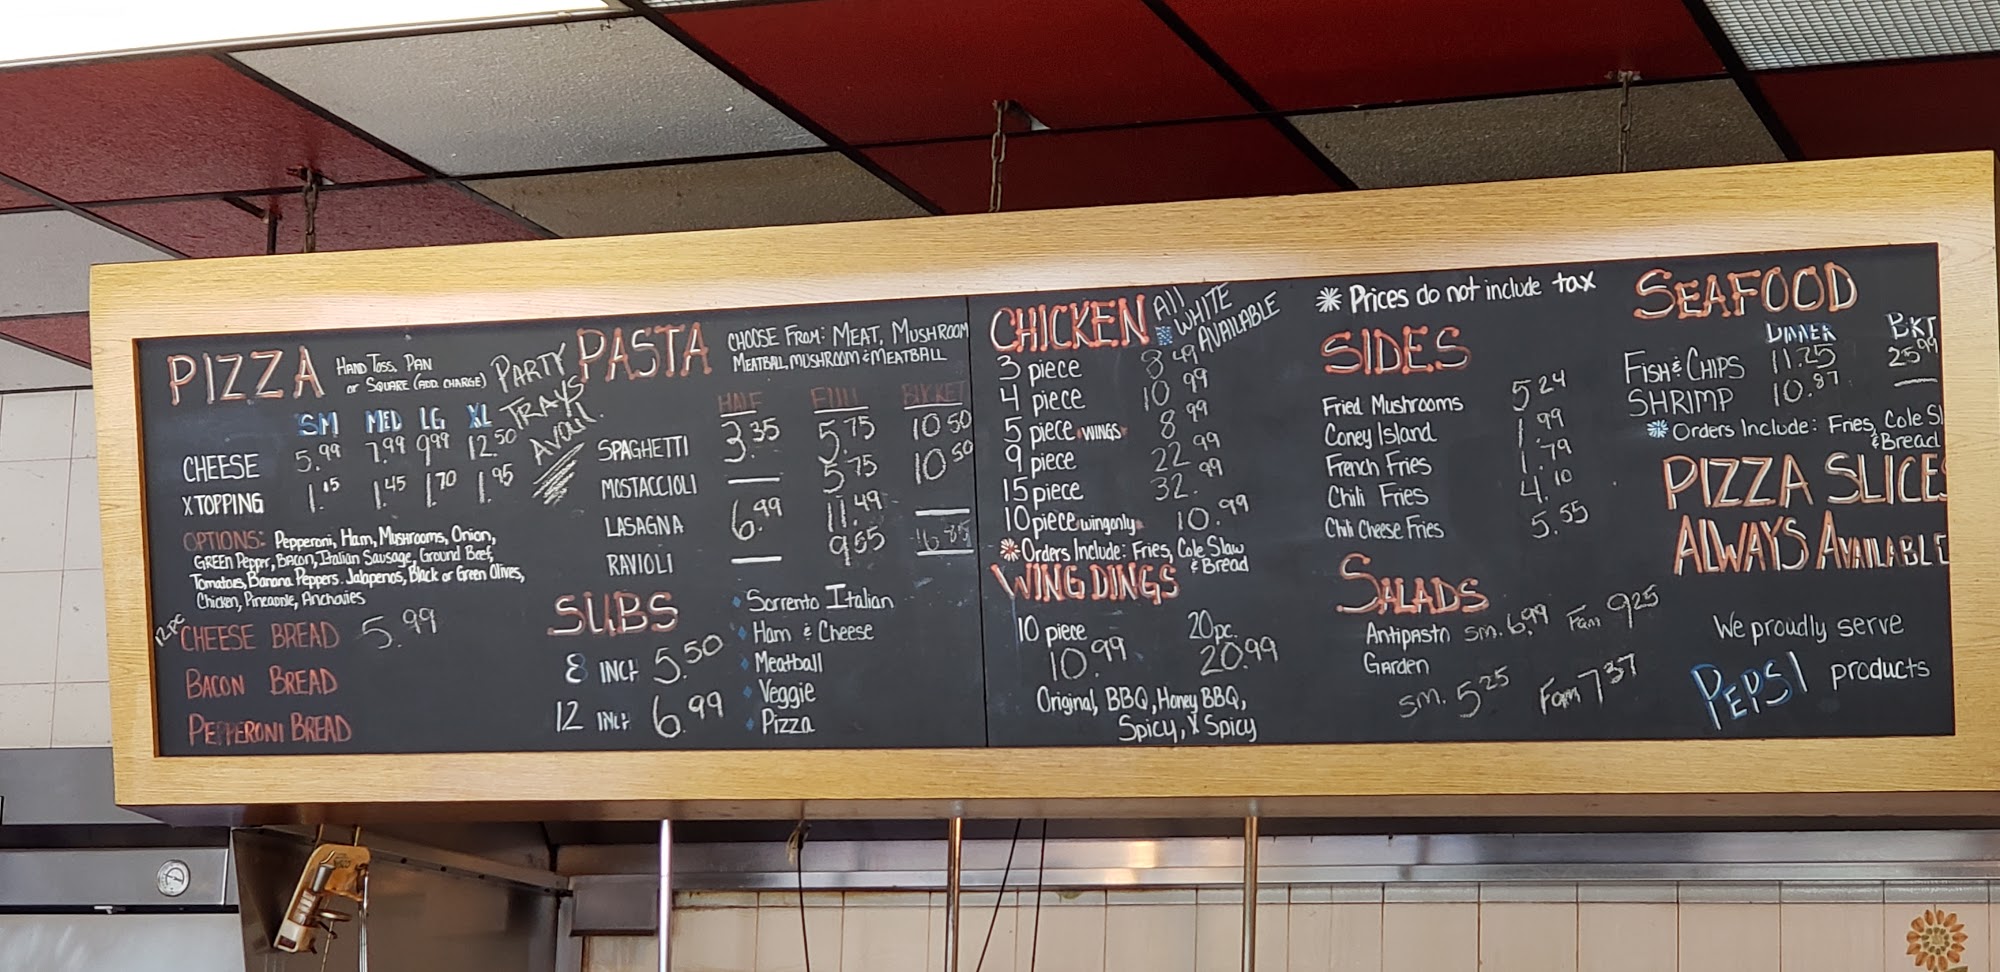 PIZZA HAND TOSS, PAN
or SQUARE (ADD. CHARGE)
PARTY
TRAYS
Avail.
SM MED LG XL
CHEESE 5.99 7.99 9.99 12.50
X TOPPING 1.15 1.45 1.70 1.95
OPTIONS: Pepperoni, Ham, Mushrooms, Onion,
GREEN Pepper, Bacon, Italian Sausage, Ground Beef,
Tomatoes, Banana Peppers. Jalapenos, Black or Green Olives,
Chicken, Pineapple, Anchovies
12 pc CHEESE BREAD 5.99
BACON BREAD
PEPPERONI BREAD
PASTA CHOOSE FROM: MEAT, MUSHROOM
MEATBALL, MUSHROOM & MEATBALL
HALF FULL BUCKET
SPAGHETTI 3.35 5.75 10.50
MOSTACCIOLI — 5.75 10.50
LASAGNA 6.99 11.49 —
RAVIOLI — 9.55 16.85
SUBS
8 INCH 5.50
12 INCH 6.99
Sorrento Italian
Ham & Cheese
Meatball
Veggie
Pizza
CHICKEN All
WHITE
AVAILABLE
3 piece 8.49
4 piece 10.99
5 piece WINGS 8.99
9 piece 22.99
15 piece 32.99
10 piece wing only 10.99
Orders Include: Fries, Cole Slaw
& Bread
WING DINGS
10 piece 20 pc.
10.99 20.99
Original, BBQ, Honey BBQ,
Spicy, X Spicy
Prices do not include tax
SIDES
Fried Mushrooms 5.24
Coney Island 1.99
French Fries 1.79
Chili Fries 4.10
Chili Cheese Fries 5.55
SALADS
Antipasto sm. 6.99 Fam 9.25
Garden
sm. 5.25 Fam 7.37
SEAFOOD
DINNER BKT
FISH & CHIPS 11.75 25.99
SHRIMP 10.87 —
Orders Include: Fries, Cole Sl
& Bread
PIZZA SLICES
ALWAYS AVAILABLE
We proudly serve
PEPSI products